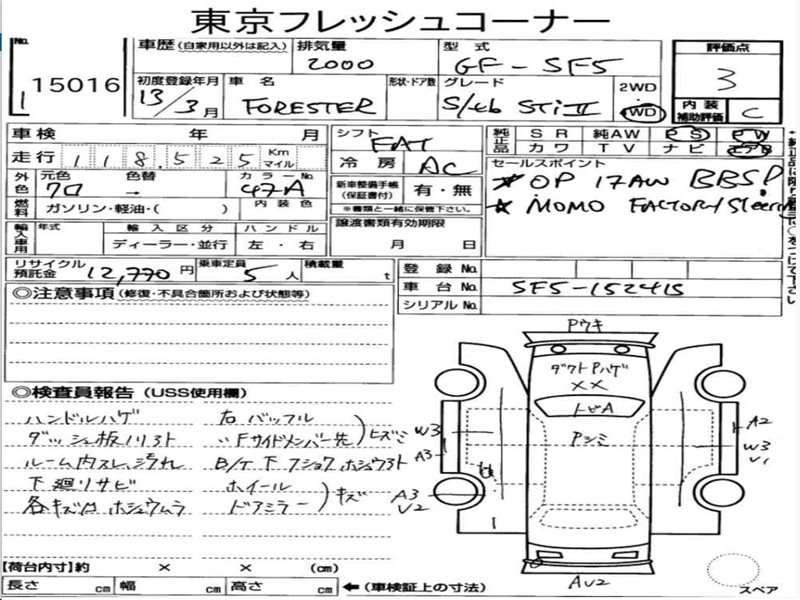 東京フレッシュコーナー
No.
15016
車歴 (自家用以外は記入)
排気量
2000
型式
GF-SF5
評価点
3
初度登録年月
13/3月
車名
FORESTER
形状・ドア数
グレード
S/tb STi II
2WD
4WD
内装
補助評価
C
車検 年 月
シフト
FAT
純正品
SR 純AW PS PW
カワ TV ナビ エアB
走行 118,525 Km
マイル
冷房 AC
セールスポイント
外色
元色 色替 カラーNo.
クロ → 47A
新車整備手帳
(保証書付)
有・無
※書類と一緒に保管下さい。
★ OP 17AW BBS
★ MOMO FACTORY Steering
燃料
ガソリン・軽油・( )
内装色
輸入車用
年式 輸入区分 ハンドル
ディーラー・並行 左・右
譲渡書類有効期限
月 日
リサイクル
預託金
12,770円
乗車定員
5人
積載量
t
登録No.
車台No. SF5-152415
シリアルNo.
◎注意事項 (修復・不具合箇所および状態等)
◎検査員報告 (USS使用欄)
ハンドルハゲ 右バッフル
ダッシュ板ノリスト 〃Fサイドメンバー先 ヒズミ
ルーム内スレ、汚れ
下廻りサビ ホイール
ドアミラー キズ
Pウキ
ダクトPハゲ
××
トビA
Pシミ
W3
A3
A3
V2
A2
W3
V1
AU2
スペア
【荷台内寸】約 × × (cm)
長さ cm 幅 cm 高さ cm ←(車検証上の寸法)